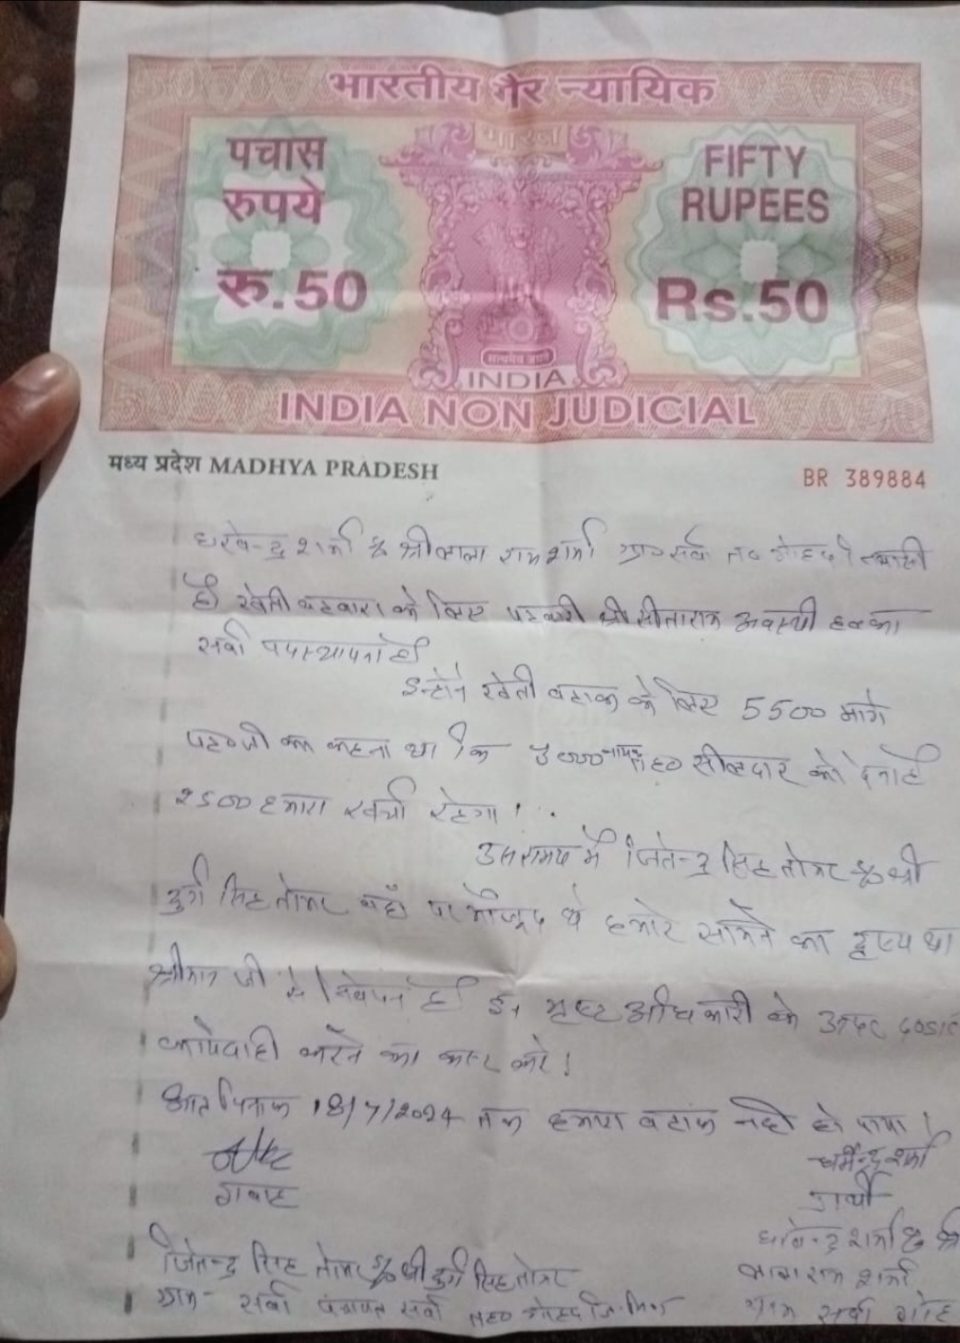 भारतीय गैर न्यायिक
भारत
पचास
रुपये
रु.50
FIFTY
RUPEES
Rs.50
सत्यमेव जयते
INDIA
INDIA NON JUDICIAL
मध्य प्रदेश MADHYA PRADESH
BR 389884
शर्मा % श्री लाला राम शर्मा ग्राम सर्वा तह० गोहद के निवासी
है खेती बटवारा के लिए पटवारी श्री सीताराम अवस्थी हल्का
सर्वा पदस्थापना है
इन्होने खेती बटाक के लिए 5500 मागे
का कहना था कि 3000 नायब तह० सीलदार को देना है
2500 हमारा खर्चा रहेगा।
उस समय में जितेन्द्र सिंह तोमर % श्री
दुर्ग सिंह तोमर वहाँ पर मौजूद थे हमारे सामने का दृष्य था
श्रीमान जी से निवेदन है इन भृष्ट अधिकारी के उपर
कार्यवाही करने का कष्ट करे।
आज दिनांक 18/7/2024 तक हमारा बटाक नही हो पाया।
गवाह
धर्मेन्द्र शर्मा
प्रार्थी
जितेन्द्र सिंह तोमर % श्री दुर्ग सिंह तोमर
शर्मा % श्री
लाला राम शर्मा
ग्राम - सर्वा पंचायत सर्वा तह० गोहद जि. भिण्ड
ग्राम सर्वा गोहद